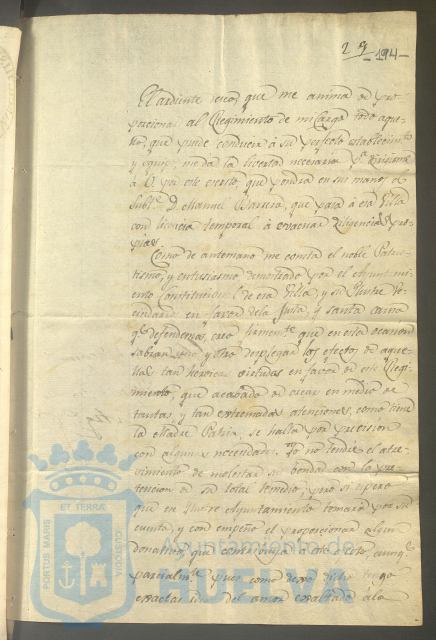 29 194
El ardiente deseo, que me anima de pro-
porcionar al Regimiento de mi cargo todo aque-
llo, que puede conducir á su perfecto establecimto
y equipo, me da la livertad necesaria pa dirigirme
á V. por este escrito, que pondrá en sus manos el
Subte. D. Manuel Barrera, que pasa á esa Villa
con licencia temporal á evacuar diligencias pro-
pias.
Como de antemano me consta el noble Patrio-
tismo, y entusiasmo demostrado por el Ayuntami-
ento Constitucional de esa Villa, y su Ilustre Ve-
cindario en favor de la Justa, y santa causa
qe defendemos, creo firmemte que en esta ocasion
sabran uno y otro desplegar los efectos de aque-
llas tan heroicas virtudes en favor de este Regi-
miento, que acabado de crear en medio de
tantas, y tan extremadas atenciones, como tiene
la Madre Patria, se halla por precision
con algunas necesidades. Yo no tendré el atre-
vimiento de molestar su bondad con la pre-
tencion de su total remedio; pero si espero
que ese Ilustre Ayuntamiento tomará por su
cuenta, y con empeño el proporcionar algun
donativo, que contribuya á este objeto, aunqe
parcialmte pues como dexo dicho tengo
exactas ideas del amor exaltado á la
PORTUS MARIS ET TERRAE CUSTODIA
Ayuntamiento de
HUELVA